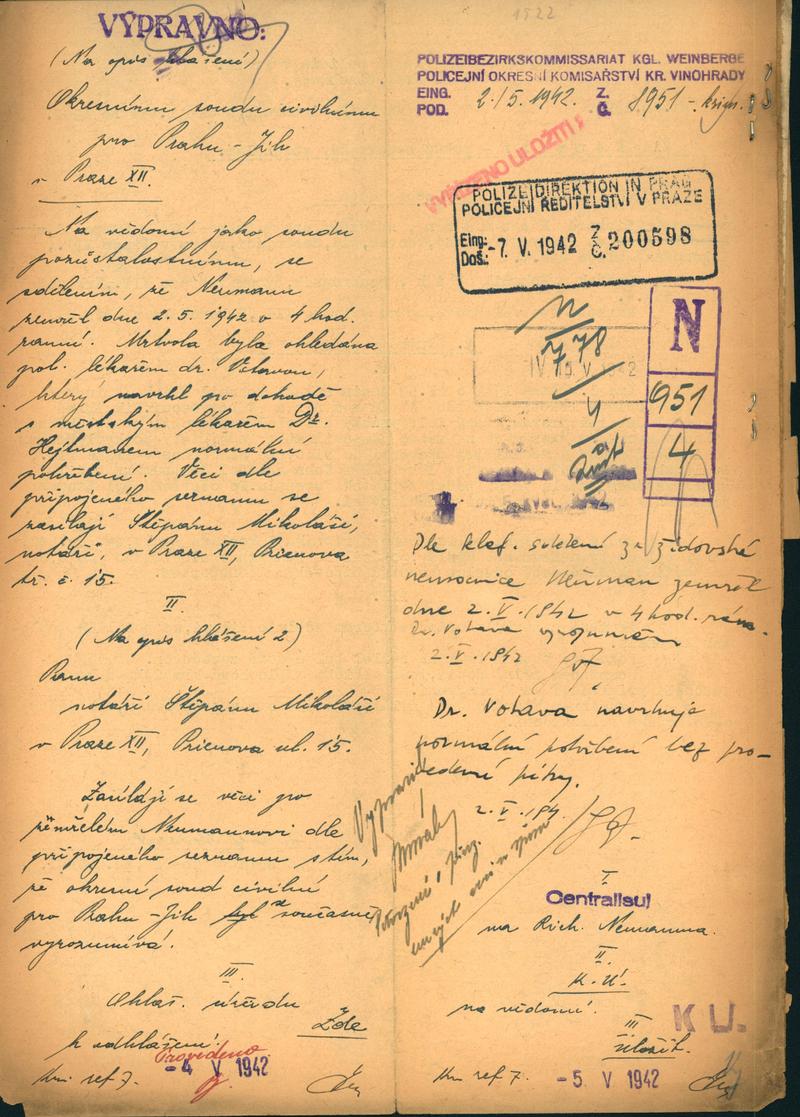 VÝPRAVNO:
(Na opis hlášení)
Okresnímu soudu civilnímu
pro Prahu-Jih
v Praze XII.
Na vědomí jako soudu
pozůstalostnímu, se
sdělením, že Neumann
zemřel dne 2.5.1942 v 4 hod.
ranní. Mrtvola byla ohledána
pol. lékařem dr. Votavou,
který navrhl po dohodě
s městským lékařem Dr.
Hejtmanem normální
pohřbení. Věci dle
připojeného seznamu se
zasílají Štěpánu Mikoláši,
notáři, v Praze XII, Prienova
tř. č. 15.
II.
(Na opis hlášení 2)
Panu
notáři Štěpánu Mikoláši
v Praze XII, Prienova ul. 15.
Zasílají se věci po
zemřelém Neumannovi dle
připojeného seznamu s tím,
že okresní soud civilní
pro Prahu-Jih byl se současně
vyrozumívá.
III.
Ohlaš. úřadu
Zde
k odhlášení.
Provedeno
-4 V 1942
ref 7.
1522
POLIZEIBEZIRKSKOMMISSARIAT KGL. WEINBERGE
POLICEJNÍ OKRESNÍ KOMISAŘSTVÍ KR. VINOHRADY
EING. 2./5. 1942. Z. 8951 - krim.
POD. Č.
VYŘÍZENO ULOŽITI!
POLIZEIDIREKTION IN PRAG
POLICEJNÍ ŘEDITELSTVÍ V PRAZE
Eing.: -7. V. 1942 Z 200598
Doš.: Č.
N
778
4
N
951
4
Dle telef. sdělení ze židovské
nemocnice Neuman zemřel
dne 2.V.1942 v 4 hod. rán.
Dr. Votava vyrozuměn
2.V.1942
Dr. Votava navrhuje
normální pohřbení bez pro-
vedení pitvy.
2.V.194
Vypraviti
I.
Centralisuj
na Rich. Neumanna.
II.
K.Ú.
na vědomí.
III.
Uložit.
K U.
ref 7.
-5. V 1942